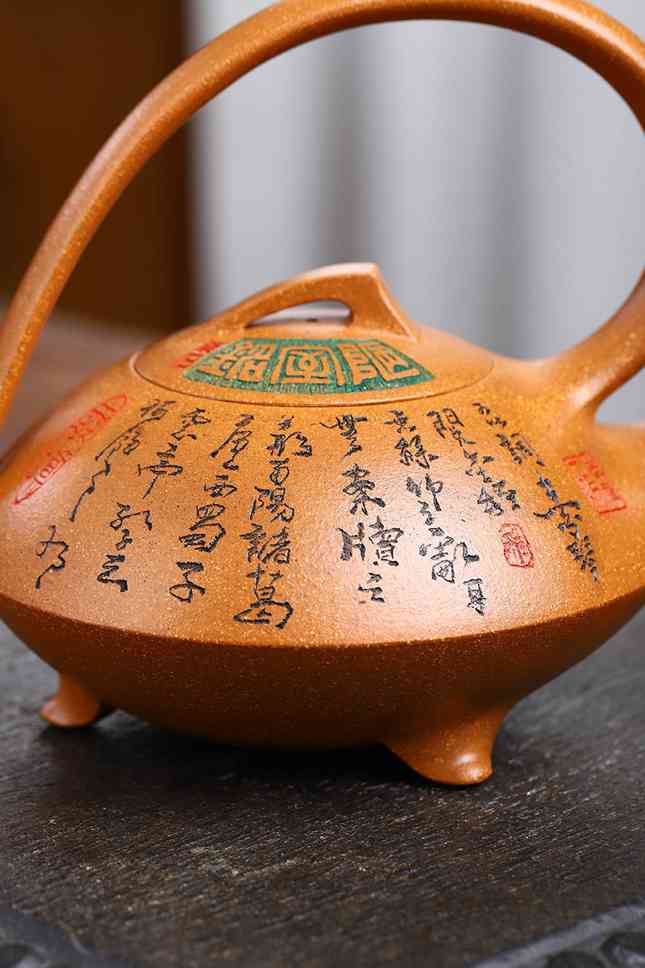 可以調素琴
閱金經
無絲竹之亂耳
無案牘之
勞形南陽諸葛
廬西蜀子
雲亭孔子云
何陋之有